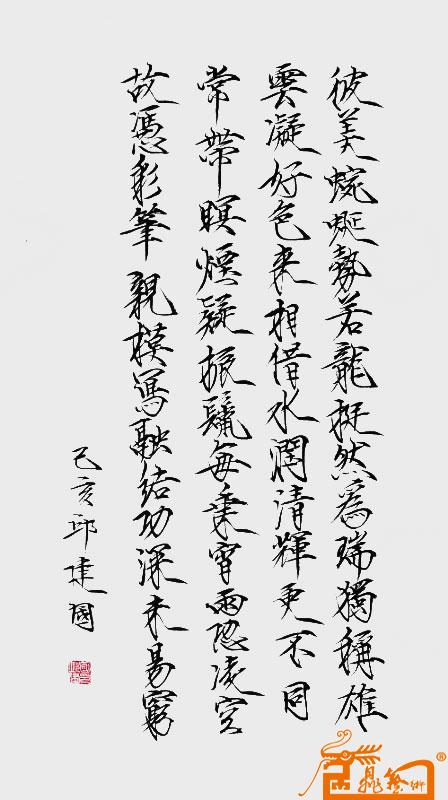 彼美蜿蜒勢若龍挺然爲瑞獨稱雄
雲凝好色來相借水潤清輝更不同
常帶瞑煙疑振鬣每乘宵雨恐凌空
故憑彩筆親模寫融結功深未易窮
己亥邱建國
鼎藝術